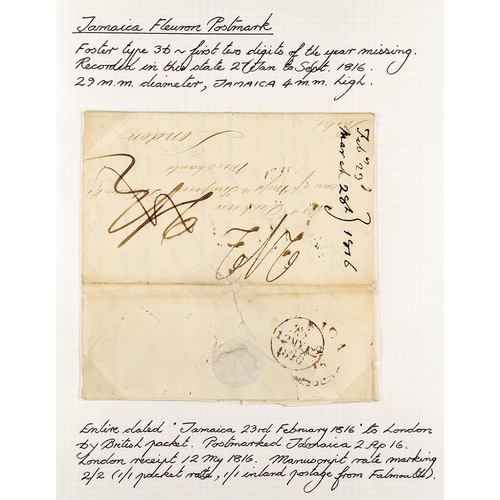 Jamaica Fleuron Postmark
Foster type 3b ~ first two digits of the year missing.
Recorded in this state 27 Jan to Sept. 1816.
29 m.m. diameter, JAMAICA 4 m.m. high.
London
Feby 23d
March 28th } 1816
12 MY 12
1816
Entire dated 'Jamaica 23rd February 1816' to London
by British packet. Postmarked Jamaica 2 Ap 16.
London receipt 12 My 1816. Manuscript rate marking
2/2 (1/1 packet rate, 1/1 inland postage from Falmouth).